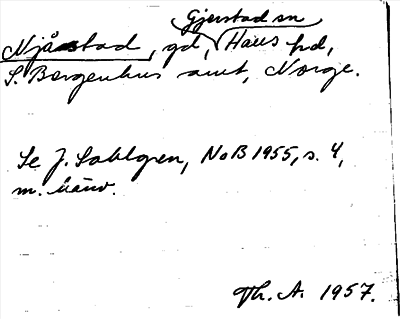 Gjerstad sn
Njåstad, gd, Haus hd,
S. Bergenhus amt, Norge.
Se J. Sahlgren, NoB 1955, s. 4,
m. hänv.
Th. A. 1957.